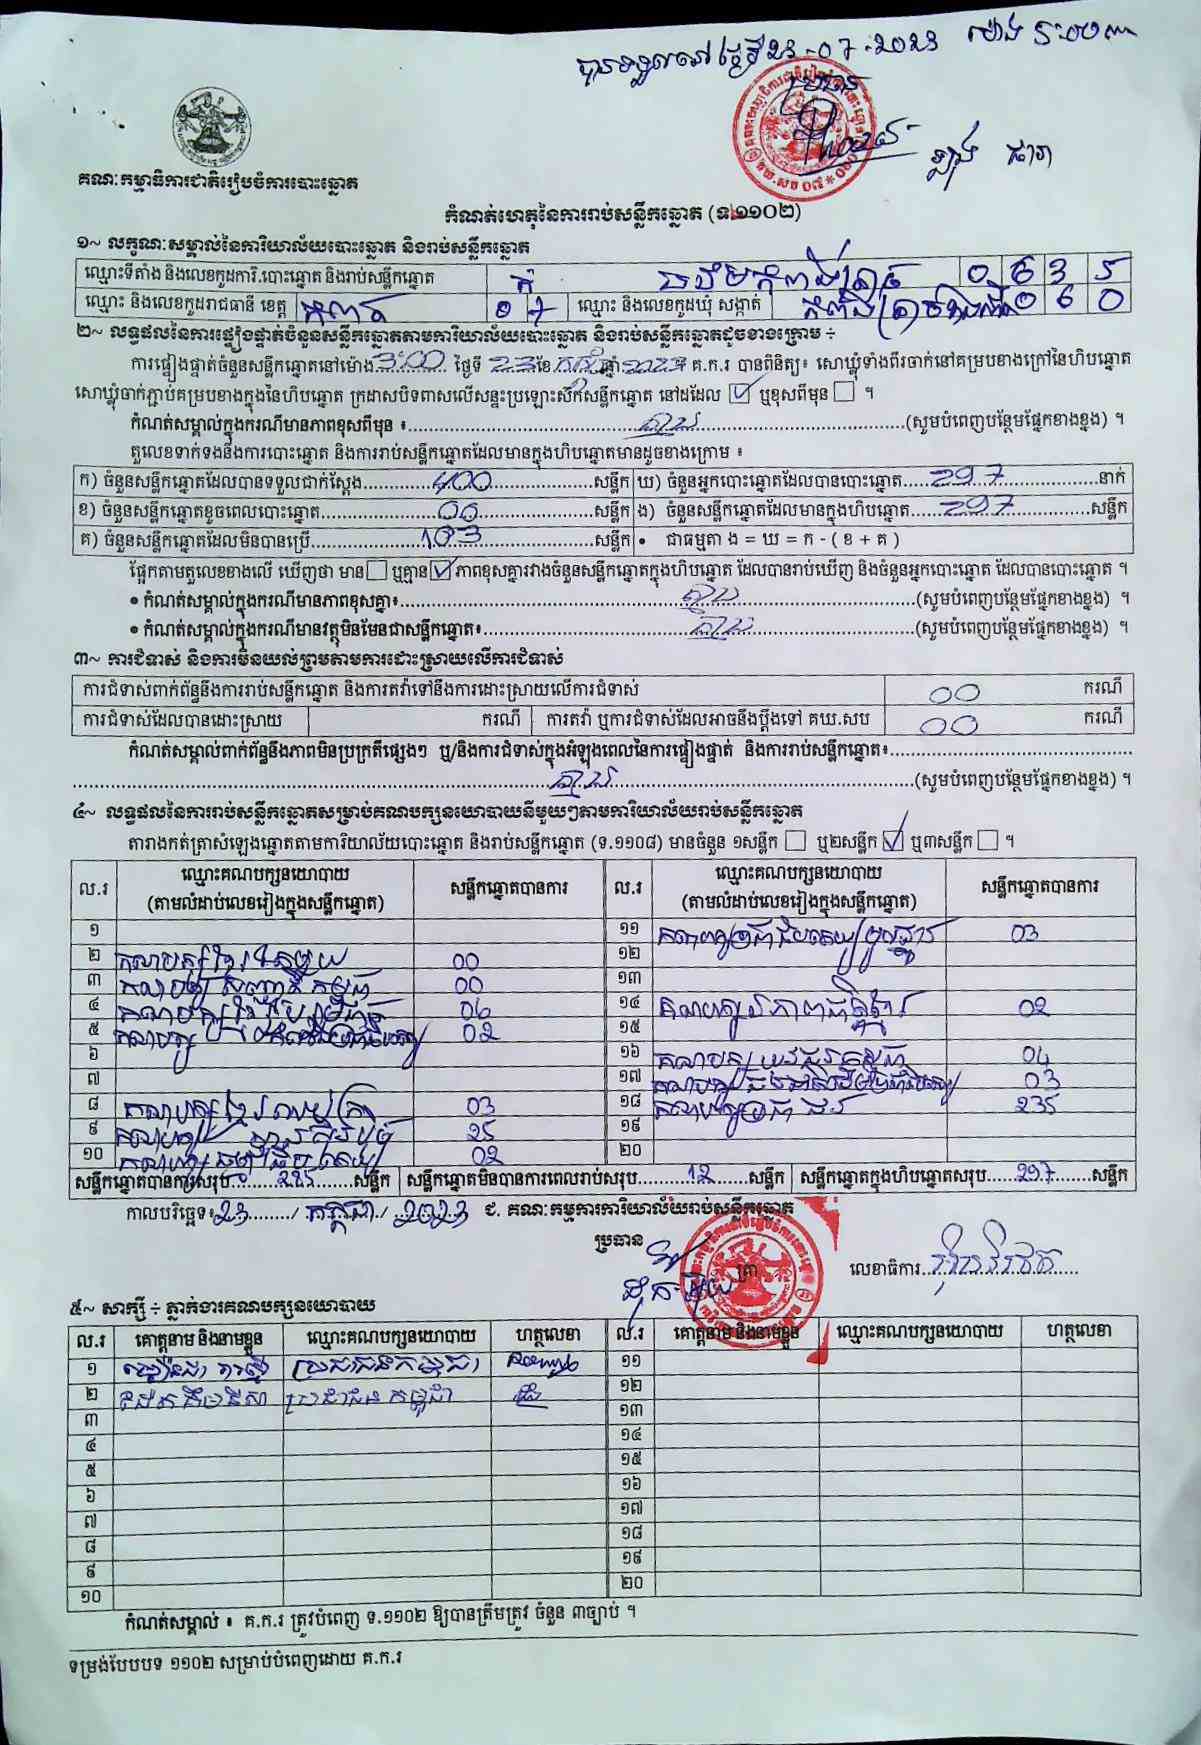 បានទទួលនៅថ្ងៃទី 23-07-2023 ម៉ោង
ប្រធាន
គណៈកម្មាធិការជាតិរៀបចំការបោះឆ្នោត
កំណត់ហេតុនៃការរាប់សន្លឹកឆ្នោត (ទ.១១០២)
១~ លក្ខណៈសម្គាល់នៃការិយាល័យបោះឆ្នោត និងរាប់សន្លឹកឆ្នោត
ឈ្មោះទីតាំង និងលេខកូដការិ.បោះឆ្នោត និងរាប់សន្លឹកឆ្នោត 0 6 3 5
ឈ្មោះ និងលេខកូដរាជធានី ខេត្ត កំពត 0 7 ឈ្មោះ និងលេខកូដឃុំ សង្កាត់ 0 6 0
២~ លទ្ធផលនៃការផ្ទៀងផ្ទាត់ចំនួនសន្លឹកឆ្នោតតាមការិយាល័យបោះឆ្នោត និងរាប់សន្លឹកឆ្នោតដូចខាងក្រោម ÷
ការផ្ទៀងផ្ទាត់ចំនួនសន្លឹកឆ្នោតនៅម៉ោង 3:00 ថ្ងៃទី 23 ខែ កក្កដា ឆ្នាំ 2023 គ.ក.រ បានពិនិត្យ៖ សោឃ្លុំទាំងពីរចាក់នៅគម្របខាងក្រៅនៃហិបឆ្នោត
សោឃ្លុំចាក់ភ្ជាប់គម្របខាងក្នុងនៃហិបឆ្នោត ក្រដាសបិទពាសលើសន្ទះប្រឡោះស៊កសន្លឹកឆ្នោត នៅដដែល ☑ ឬខុសពីមុន ☐ ។
កំណត់សម្គាល់ក្នុងករណីមានភាពខុសពីមុន ៖ គ្មាន (សូមបំពេញបន្ថែមផ្នែកខាងខ្នង) ។
តួលេខទាក់ទងនឹងការបោះឆ្នោត និងការរាប់សន្លឹកឆ្នោតដែលមានក្នុងហិបឆ្នោតមានដូចខាងក្រោម ៖
ក) ចំនួនសន្លឹកឆ្នោតដែលបានទទួលជាក់ស្តែង 400 សន្លឹក ឃ) ចំនួនអ្នកបោះឆ្នោតដែលបានបោះឆ្នោត 297 នាក់
ខ) ចំនួនសន្លឹកឆ្នោតខូចពេលបោះឆ្នោត 00 សន្លឹក ង) ចំនួនសន្លឹកឆ្នោតដែលមានក្នុងហិបឆ្នោត 297 សន្លឹក
គ) ចំនួនសន្លឹកឆ្នោតដែលមិនបានប្រើ 103 សន្លឹក • ជាធម្មតា ង = ឃ = ក - ( ខ + គ )
ផ្អែកតាមតួលេខខាងលើ ឃើញថា មាន ☐ ឬគ្មាន ☑ ភាពខុសគ្នារវាងចំនួនសន្លឹកឆ្នោតក្នុងហិបឆ្នោត ដែលបានរាប់ឃើញ និងចំនួនអ្នកបោះឆ្នោត ដែលបានបោះឆ្នោត ។
• កំណត់សម្គាល់ក្នុងករណីមានភាពខុសគ្នា៖ គ្មាន (សូមបំពេញបន្ថែមផ្នែកខាងខ្នង) ។
• កំណត់សម្គាល់ក្នុងករណីមានវត្ថុមិនមែនជាសន្លឹកឆ្នោត៖ គ្មាន (សូមបំពេញបន្ថែមផ្នែកខាងខ្នង) ។
៣~ ការជំទាស់ និងការមិនយល់ព្រមតាមការដោះស្រាយលើការជំទាស់
ការជំទាស់ពាក់ព័ន្ធនឹងការរាប់សន្លឹកឆ្នោត និងការតវ៉ាទៅនឹងការដោះស្រាយលើការជំទាស់ 00 ករណី
ការជំទាស់ដែលបានដោះស្រាយ ករណី ការតវ៉ា ឬការជំទាស់ដែលអាចនឹងប្តឹងទៅ គឃ.សប 00 ករណី
កំណត់សម្គាល់ពាក់ព័ន្ធនឹងភាពមិនប្រក្រតីផ្សេងៗ ឬ/និងការជំទាស់ក្នុងអំឡុងពេលនៃការផ្ទៀងផ្ទាត់ និងការរាប់សន្លឹកឆ្នោត៖
គ្មាន (សូមបំពេញបន្ថែមផ្នែកខាងខ្នង) ។
៤~ លទ្ធផលនៃការរាប់សន្លឹកឆ្នោតសម្រាប់គណបក្សនយោបាយនីមួយៗតាមការិយាល័យរាប់សន្លឹកឆ្នោត
តារាងកត់ត្រាសំឡេងឆ្នោតតាមការិយាល័យបោះឆ្នោត និងរាប់សន្លឹកឆ្នោត (ទ.១១០៨) មានចំនួន ១សន្លឹក ☐ ឬ២សន្លឹក ☑ ឬ៣សន្លឹក ☐ ។
ល.រ ឈ្មោះគណបក្សនយោបាយ (តាមលំដាប់លេខរៀងក្នុងសន្លឹកឆ្នោត) សន្លឹកឆ្នោតបានការ ល.រ ឈ្មោះគណបក្សនយោបាយ (តាមលំដាប់លេខរៀងក្នុងសន្លឹកឆ្នោត) សន្លឹកឆ្នោតបានការ
១ ១១ គណបក្សប្រជាធិបតេយ្យមូលដ្ឋាន 03
២ គណបក្សខ្មែរតែមួយ 00 ១២
៣ គណបក្សសញ្ជាតិកម្ពុជា 00 ១៣
៤ គណបក្ស 06 ១៤ គណបក្ស 02
៥ គណបក្ស 02 ១៥
៦ ១៦ គណបក្សយុវជនកម្ពុជា 04
៧ ១៧ គណបក្ស 03
៨ គណបក្សខ្មែរ 03 ១៨ គណបក្សប្រជាជន 235
៩ គណបក្សហ្វ៊ុនស៊ិនប៉ិច 25 ១៩
១០ គណបក្ស 02 ២០
សន្លឹកឆ្នោតបានការសរុប 285 សន្លឹក សន្លឹកឆ្នោតមិនបានការពេលរាប់សរុប 12 សន្លឹក សន្លឹកឆ្នោតក្នុងហិបឆ្នោតសរុប 297 សន្លឹក
កាលបរិច្ឆេទ៖ 23 / កក្កដា / 2023 ជ. គណៈកម្មការការិយាល័យរាប់សន្លឹកឆ្នោត
ប្រធាន
ត្រា
លេខាធិការ
៥~ សាក្សី ÷ ភ្នាក់ងារគណបក្សនយោបាយ
ល.រ គោត្តនាម និងនាមខ្លួន ឈ្មោះគណបក្សនយោបាយ ហត្ថលេខា ល.រ គោត្តនាម និងនាមខ្លួន ឈ្មោះគណបក្សនយោបាយ ហត្ថលេខា
១ ប្រជាជនកម្ពុជា ១១
២ ប្រជាជនកម្ពុជា ១២
៣ ១៣
៤ ១៤
៥ ១៥
៦ ១៦
៧ ១៧
៨ ១៨
៩ ១៩
១០ ២០
កំណត់សម្គាល់ ៖ គ.ក.រ ត្រូវបំពេញ ទ.១១០២ ឱ្យបានត្រឹមត្រូវ ចំនួន ៣ច្បាប់ ។
ទម្រង់បែបបទ ១១០២ សម្រាប់បំពេញដោយ គ.ក.រ